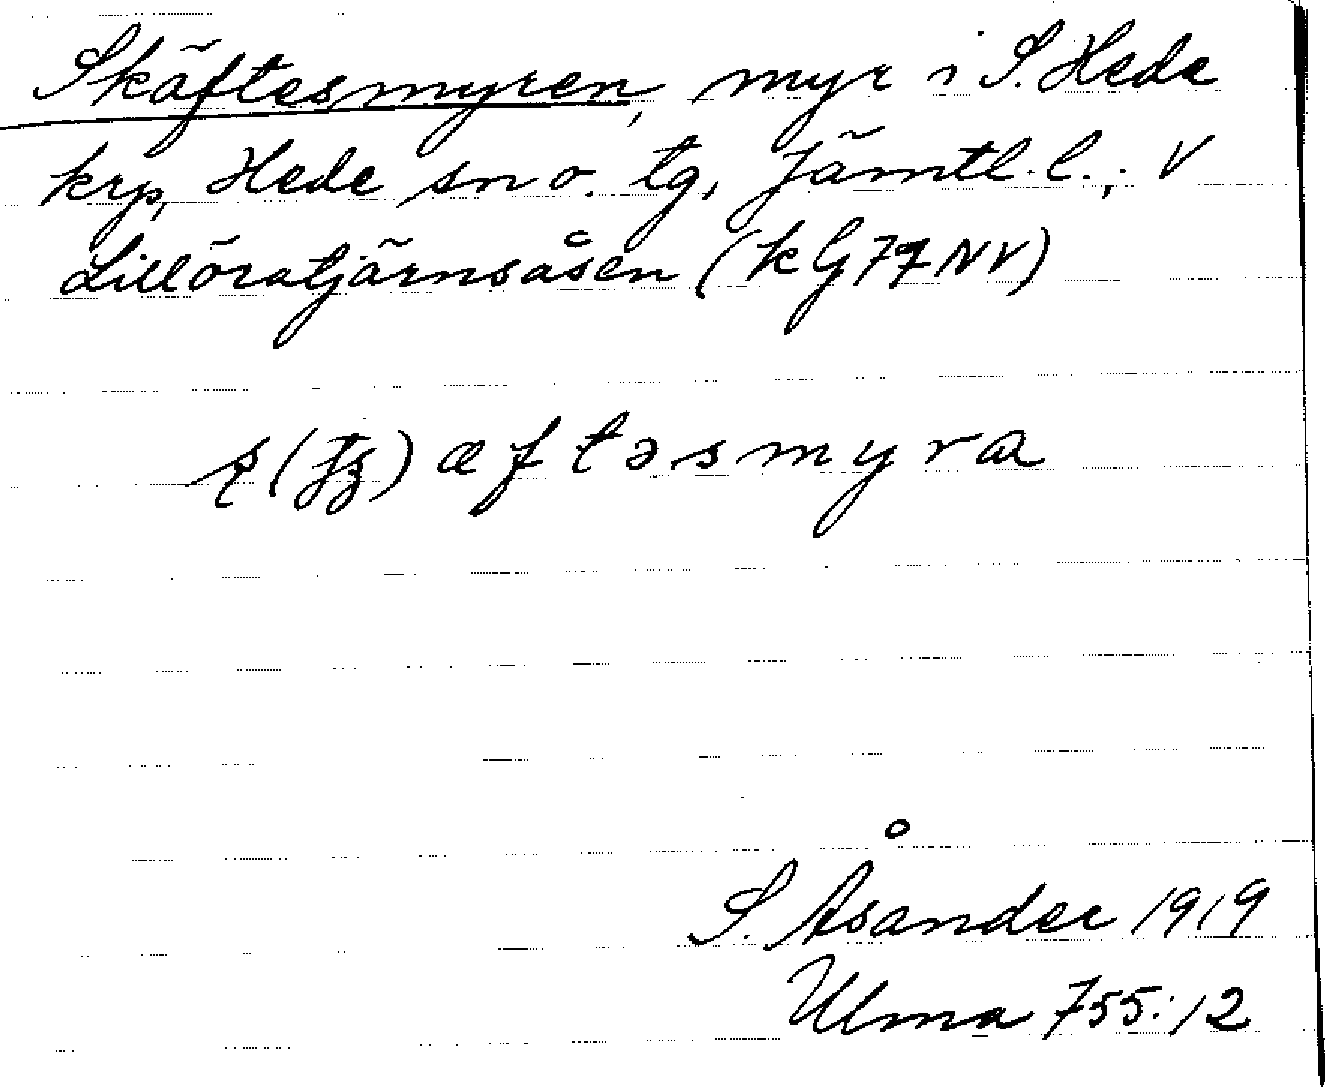 Skäftesmyren, myr i S. Hede
krp, Hede sn o. tg, Jämtl. l.; V
Lilloratjärnsåsen (k G 77 NV)
æftəsmyra
S. Åsander 1919
Ulma 755:12